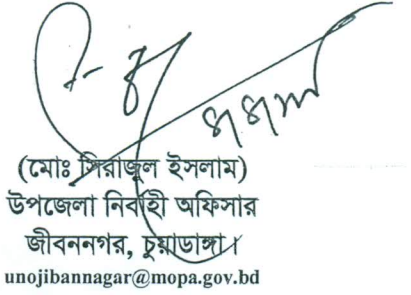 (মোঃ সিরাজুল ইসলাম)
উপজেলা নির্বাহী অফিসার
জীবননগর, চুয়াডাঙ্গা।
unojibannagar@mopa.gov.bd